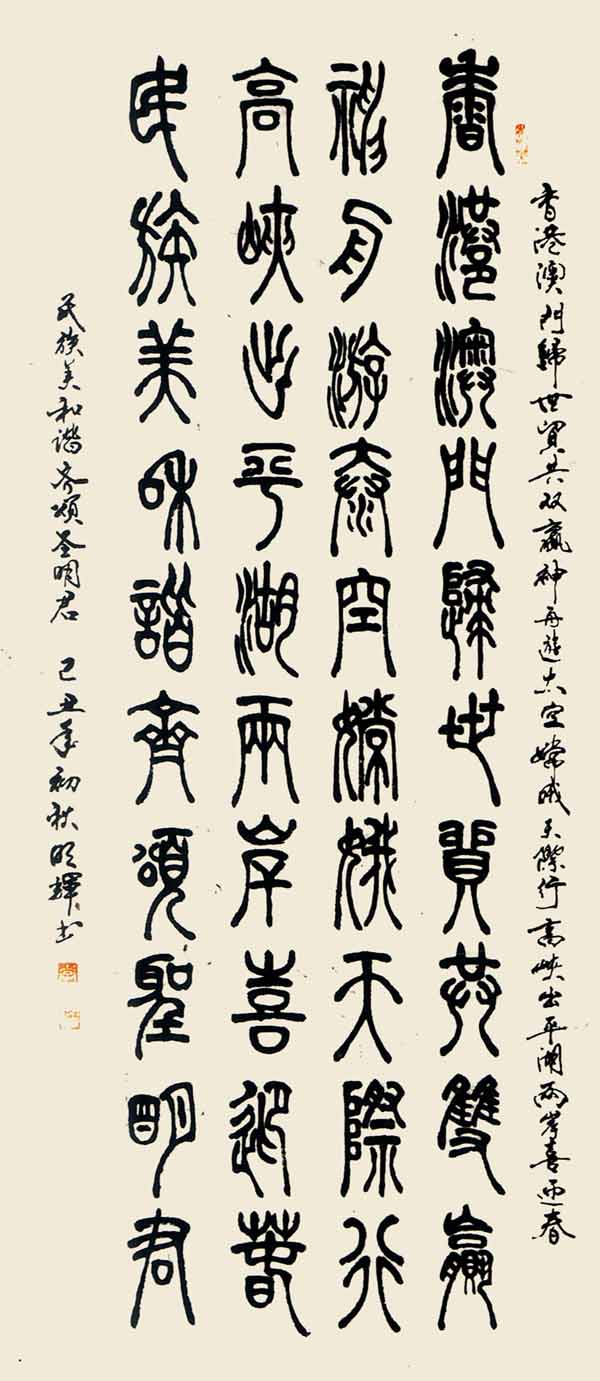 香港澳門歸世貿共双赢神舟遊太空嫦娥天際行高峡出平湖两岸喜迎春
香港澳門歸世貿共雙贏
神舟游泰空嫦娥天際行
高峽出平湖兩岸喜迎春
民族美和諧齊頌聖明君
民族美和谐齐颂圣明君 己丑年初秋明輝书